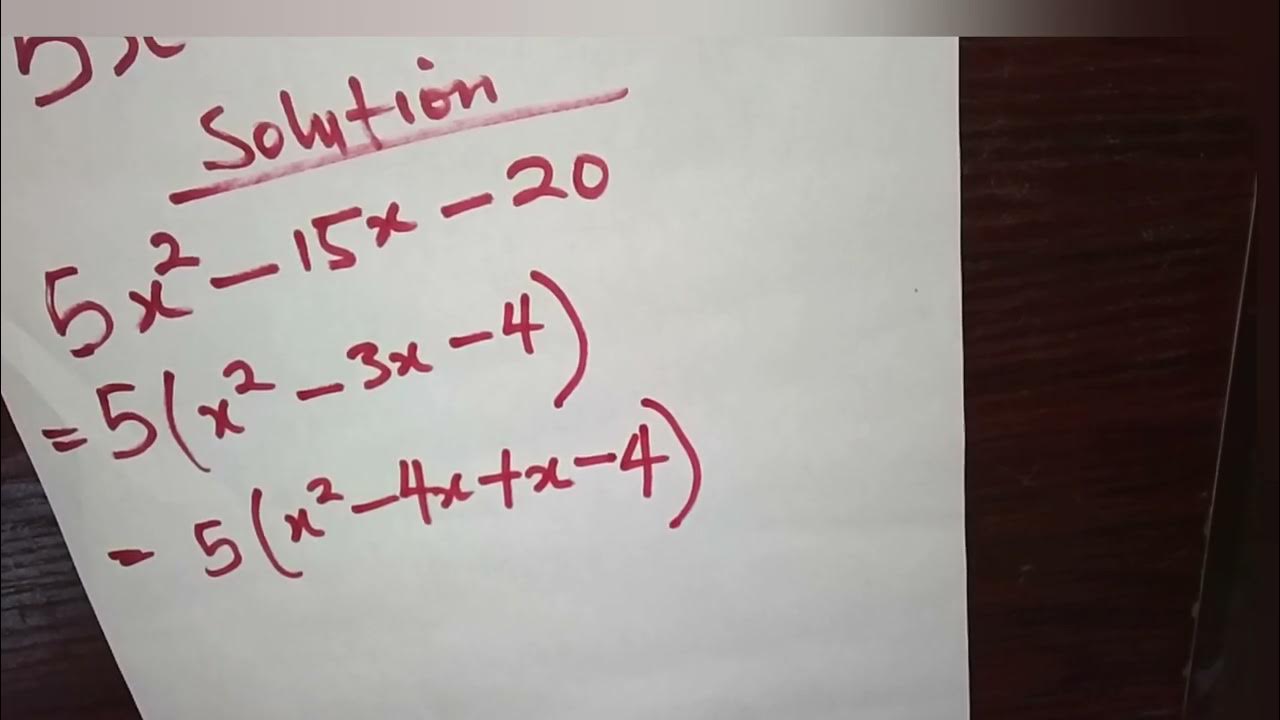 5x
Solution
5x² - 15x - 20
= 5(x² - 3x - 4)
= 5(x² - 4x + x - 4)